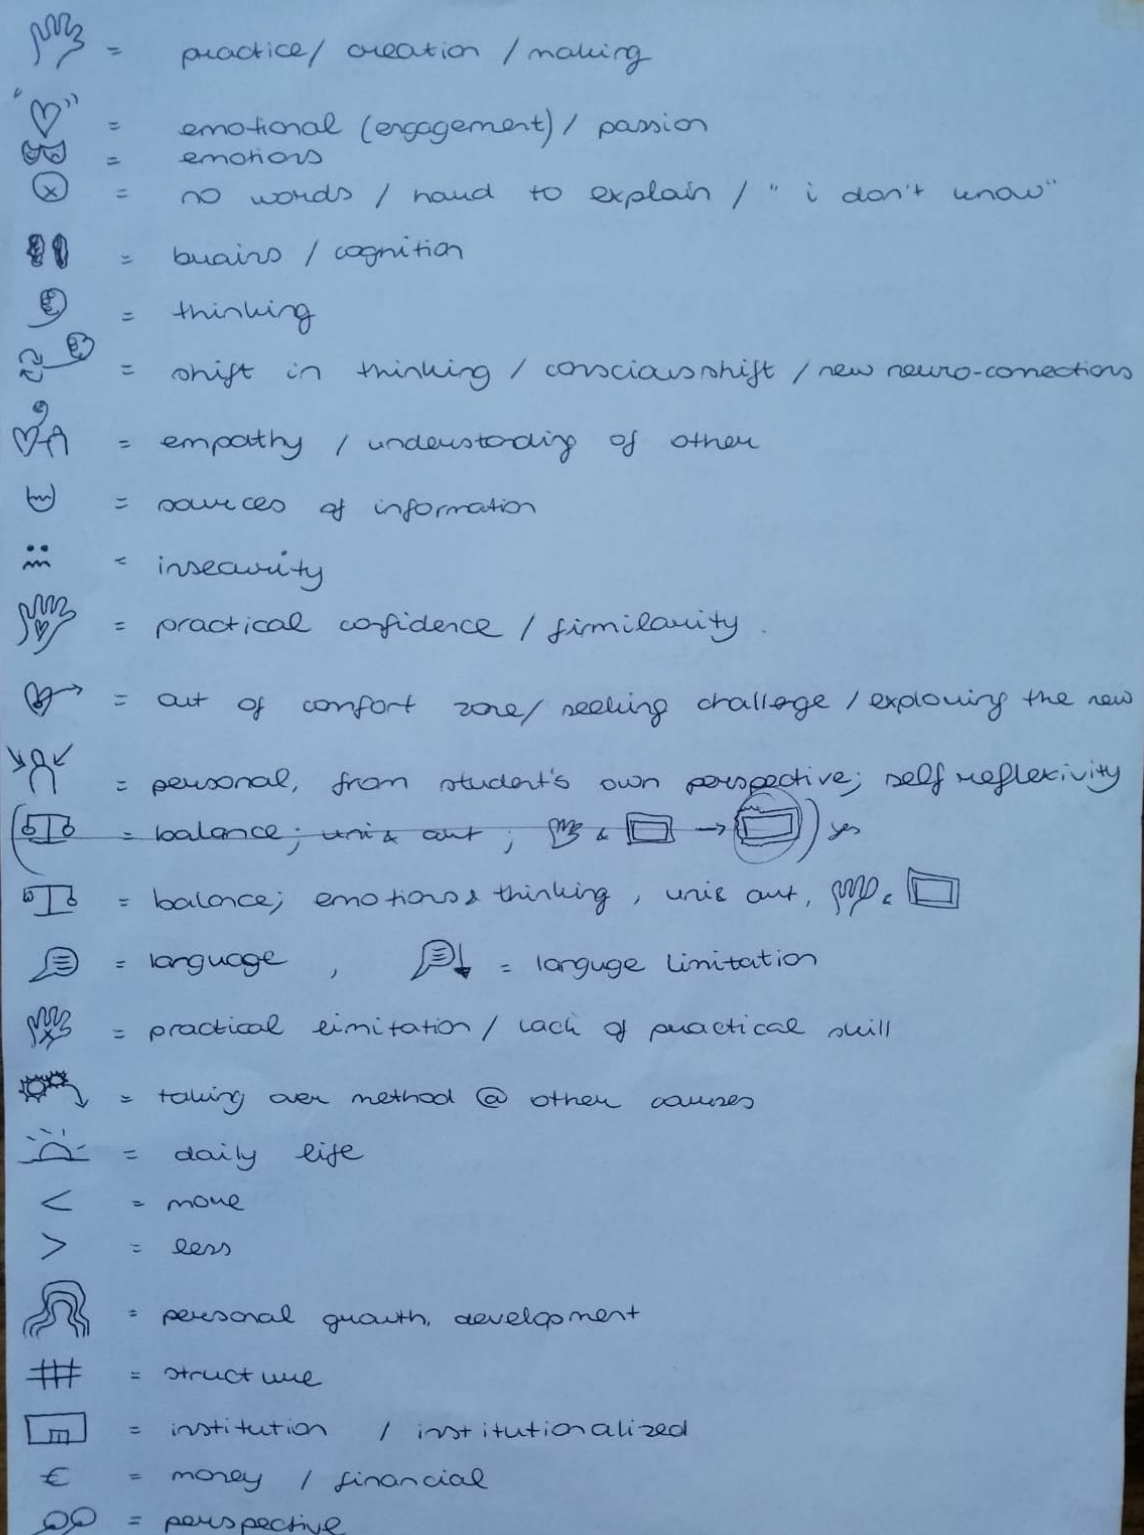 = practice / creation / making
= emotional (engagement) / passion
= emotions
= no words / hard to explain / "i don't know"
= brains / cognition
= thinking
= shift in thinking / conscious shift / new neuro-connections
= empathy / understanding of other
= sources of information
= insecurity
= practical confidence / firmilarity.
= out of comfort zone / seeking challenge / exploring the new
= personal, from student's own perspective; self reflexivity
( = balance; uni & art ; & → ) yes
= balance; emotions & thinking, uni & art, &
= language , = languge limitation
= practical limitation / lack of practical skill
= taking over method @ other courses
= daily life
< = more
> = less
= personal growth, development
= structure
= institution / institutionalized
€ = money / financial
= perspective